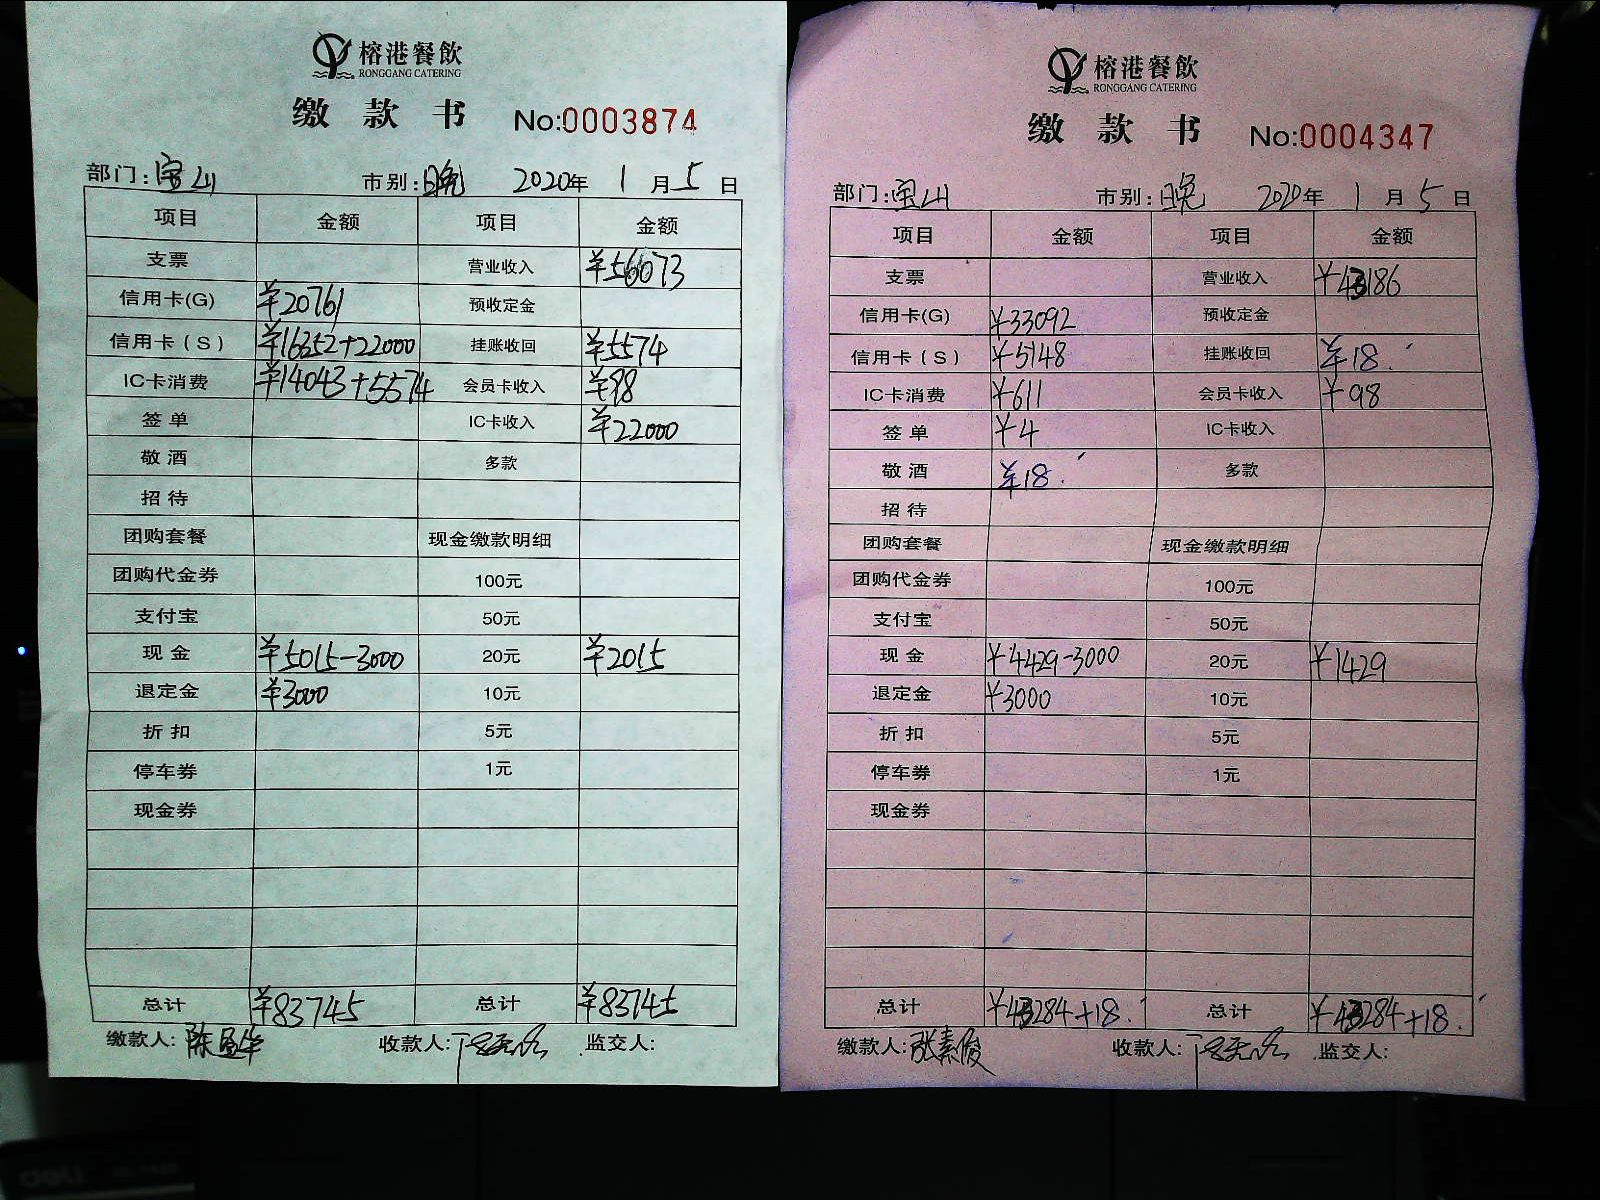 榕港餐飲
RONGGANG CATERING
缴款书 No:0003874
部门:宝山 市别:晚 2020年1月5日
项目 金额 项目 金额
支票 营业收入 ¥56073
信用卡(G) ¥20761 预收定金
信用卡(S) ¥16352+22000 挂账收回 ¥5574
IC卡消费 ¥14043+5574 会员卡收入 ¥98
签单 IC卡收入 ¥22000
敬酒 多款
招待
团购套餐 现金缴款明细
团购代金券 100元
支付宝 50元
现金 ¥5015-3000 20元 ¥2015
退定金 ¥3000 10元
折扣 5元
停车券 1元
现金券
总计 ¥83745 总计 ¥83745
缴款人: 收款人: 监交人:
榕港餐飲
RONGGANG CATERING
缴款书 No:0004347
部门:宝山 市别:晚 2020年1月5日
项目 金额 项目 金额
支票 营业收入 ¥43186
信用卡(G) ¥33092 预收定金
信用卡(S) ¥5148 挂账收回 ¥18.
IC卡消费 ¥611 会员卡收入 ¥98
签单 ¥4 IC卡收入
敬酒 ¥18. 多款
招待
团购套餐 现金缴款明细
团购代金券 100元
支付宝 50元
现金 ¥4429-3000 20元 ¥1429
退定金 ¥3000 10元
折扣 5元
停车券 1元
现金券
总计 ¥43284+18. 总计 ¥43284+18.
缴款人:张素俊 收款人: 监交人:
deli